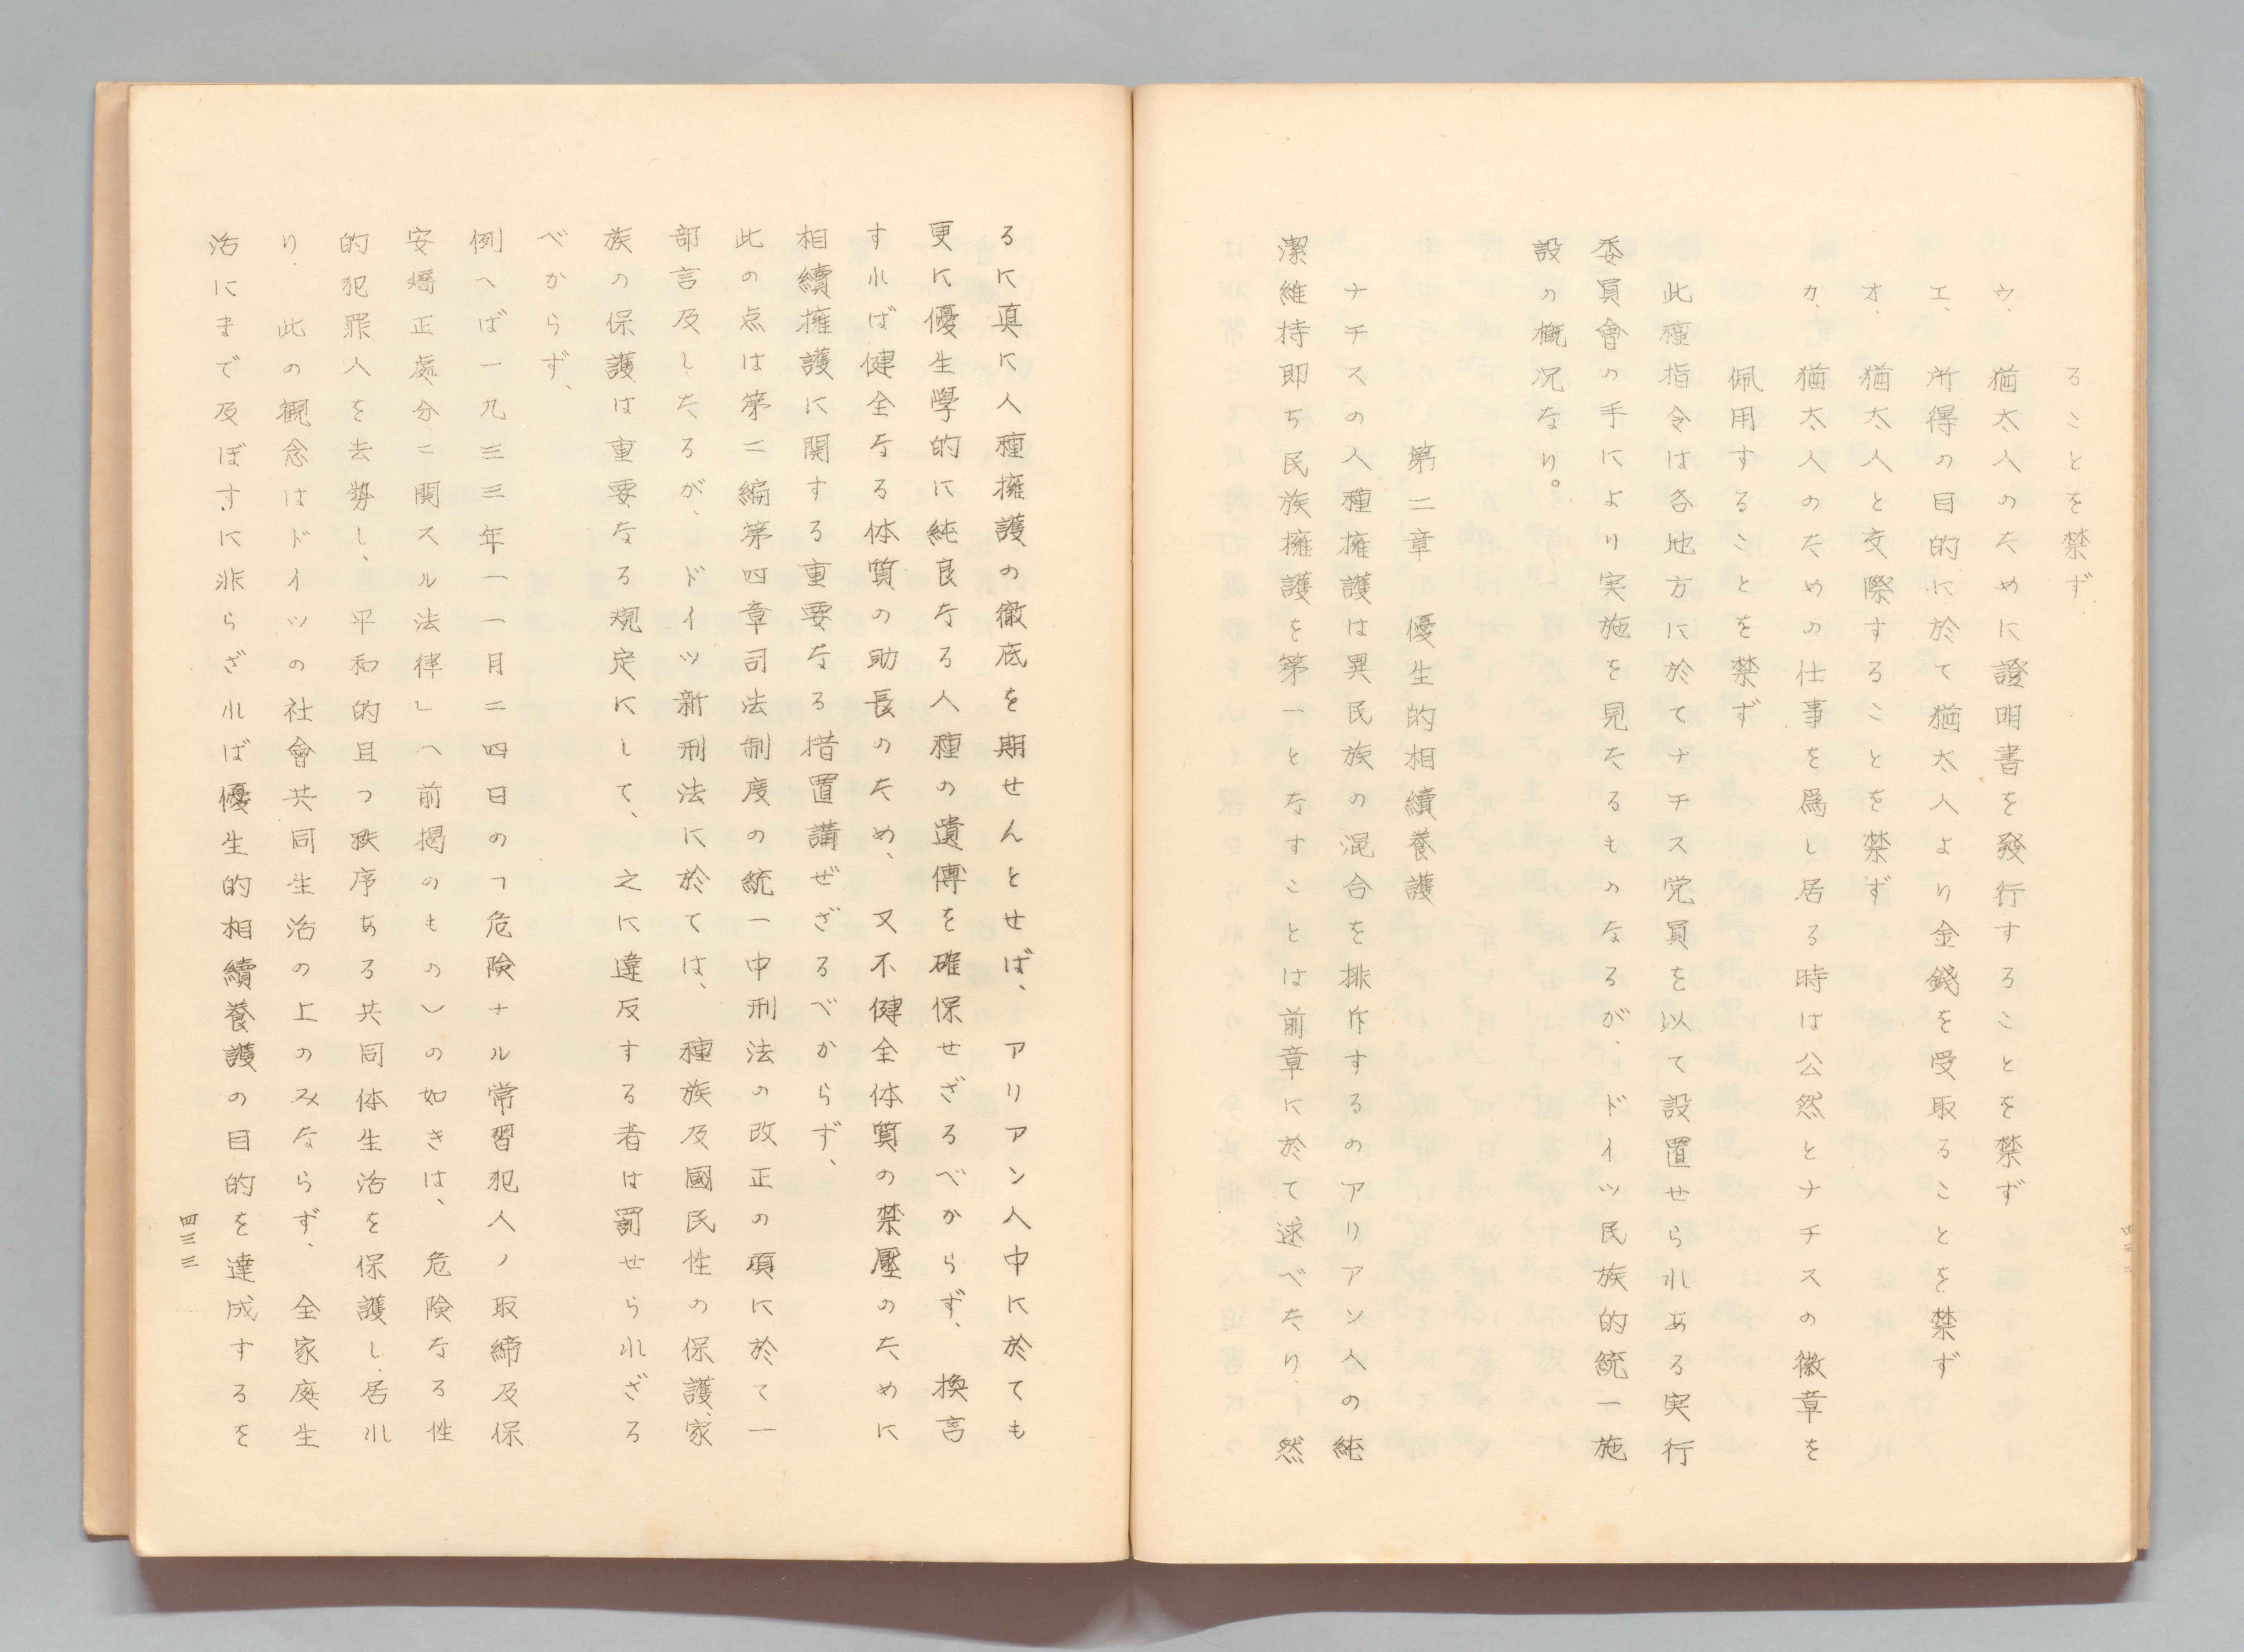 ることを禁ず.
ウ、猶太人のために證明書を發行することを禁ず
エ、所得の目的に於て猶太人より金錢を受取ることを禁ず
オ.猶太人と交際することを禁ず
カ、猶太人のための仕事を爲し居る時は公然とナチスの徽章を
佩用することを禁ず
此種指令は各地方に於てナチス党員を以て設置せられある実行
委員會の手により実施を見たるものなるが、ドイツ民族的統一施
設の概况なり。
第二章 優生的相續養護
ナチスの人種擁護は異民族の混合を排斥するのアリアン人の純
潔維持即ち民族擁護を第一となすことは前章に於て述べたり.然
るに真に人種擁護の徹底を期せんとせば、アリアン人中に於ても
更に優生學的に純良なる人種の遺傳を確保せざるべからず、換言
すれば健全なる体質の助長のため、又不健全体質の禁壓のために
相續擁護に関する重要なる措置講ぜざるべからず、
此の点は第二編第四章司法制度の統一中刑法の改正の項に於て一
部言及したるが、ドイツ新刑法に於ては、種族及國民性の保護、家
族の保護は重要なる規定にして、之に違反する者は罰せられざる
べからず、
例へば一九三三年一一月二四日の「危険ナル常習犯人ノ取締及保
安矯正處分ニ関スル法律」(前揭のもの)の如きは、危険なる性
的犯罪人を去勢し、平和的且つ秩序ある共同体生活を保護し居れ
り.此の觀念はドイツの社會共同生活の上のみならず、全家庭生
活にまで及ぼすに非らざれば優生的相續養護の目的を達成するを
四三三